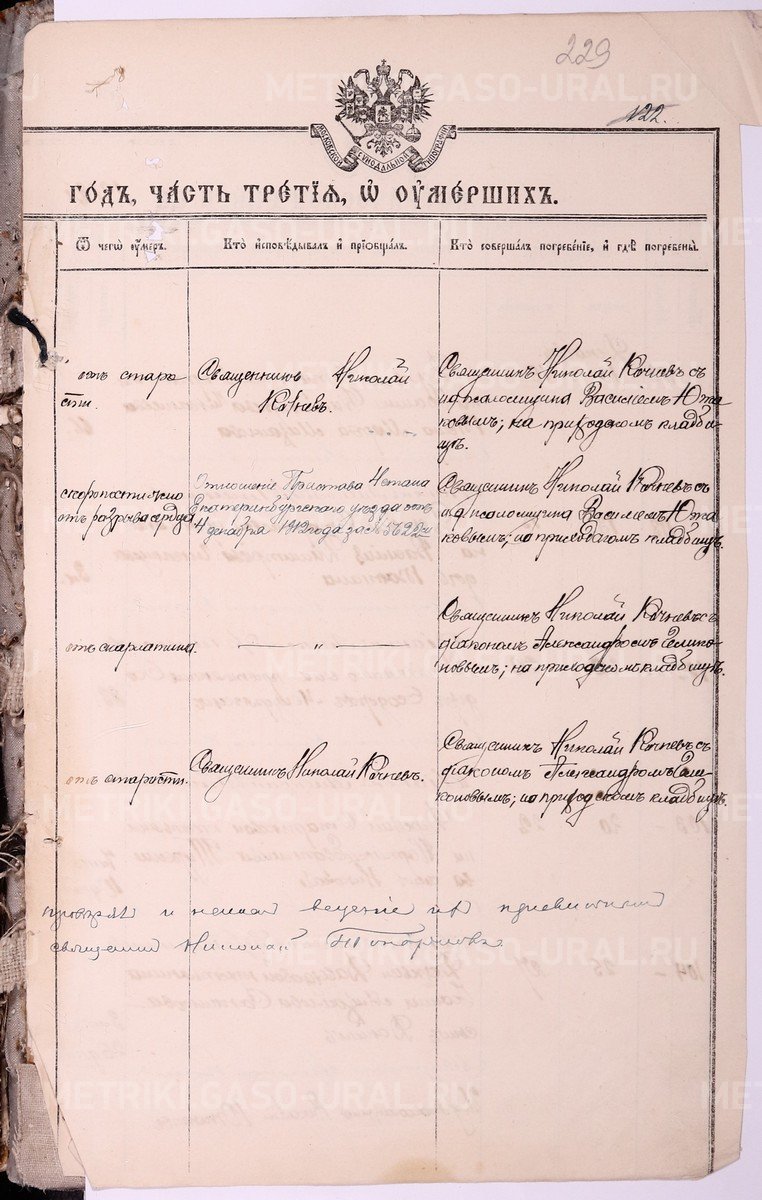 229
122.
МОСКОВСКОЙ СѴНОДАЛЬНОЙ ТИПОГРАФІИ
ГО́ДЪ, ЧА́СТЬ ТРЕ́ТІЯ, Ѽ ОУ҆МЕ́РШИХЪ.
Ѿ чегѡ̀ оу҆́меръ.
Кто̀ и҆сповѣ́дывалъ и҆ прїѡбща́лъ.
Кто̀ соверша́лъ погребе́нїе, и҆ гдѣ̀ погребены̀.
отъ старо
сти.
Священникъ Николай
Кочневъ.
Священникъ Николай Кочневъ съ
и д псаломщика Василіемъ Юша
ковымъ; на приходскомъ кладби-
щѣ.
скоропостижно
отъ разрыва сердца
Отношеніе Пристава 4 стана
Екатеринбургскаго уѣзда отъ
4 декабря 1912 года за № 5622
Священникъ Николай Кочневъ съ
и д псаломщика Василіемъ Юша
ковымъ; на приходскомъ кладбищѣ.
отъ скарлатины.
— " —
Священникъ Николай Кочневъ съ
діакономъ Александромъ
новымъ; на приходскомъ кладбищѣ.
отъ старости.
Священникъ Николай Кочневъ.
Священникъ Николай Кочневъ съ
діакономъ Александромъ
коновымъ; на приходскомъ кладбищѣ.
священникъ Николай Топорковъ
METRIKI.GASO-URAL.RU